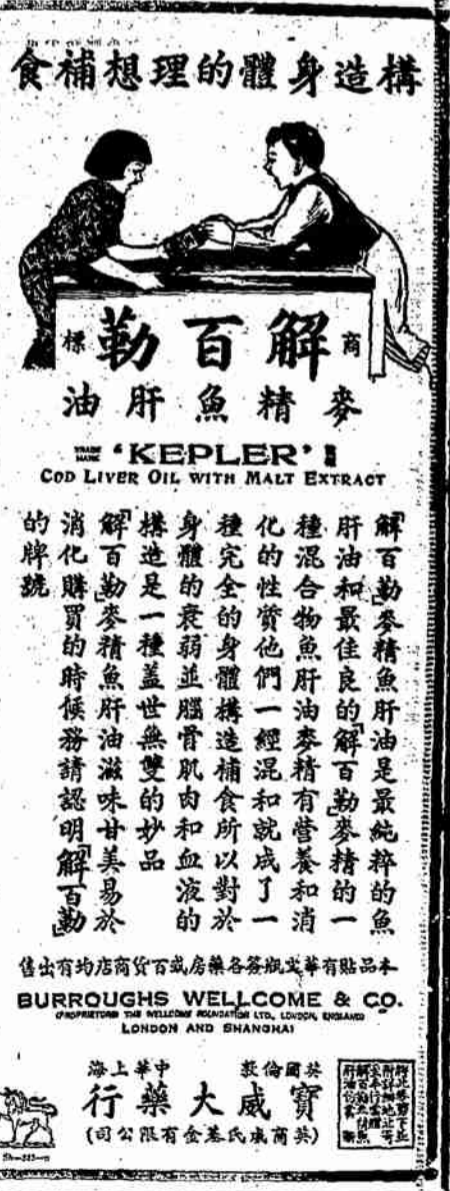 構造身體的理想補食
商標
解百勒
麥精魚肝油
TRADE MARK 'KEPLER' 商標
COD LIVER OIL WITH MALT EXTRACT
「解百勒」麥精魚肝油是最純粹的魚
肝油和最佳良的「解百勒」麥精的一
種混合物魚肝油麥精有營養和消
化的性質他們一經混和就成了一
種完全的身體構造補食所以對於
身體的衰弱並腦骨肌肉和血液的
構造是一種蓋世無雙的妙品
「解百勒」麥精魚肝油滋味甘美易於
消化購買的時候務請認明「解百勒」
的牌號
本品貼有華文瓶簽各藥房或百貨商店均有出售
BURROUGHS WELLCOME & CO.
(PROPRIETORS THE WELLCOME FOUNDATION LTD., LONDON, ENGLAND)
LONDON AND SHANGHAI
英國倫敦 中華上海
寶威大藥行
(英商威氏基金有限公司)